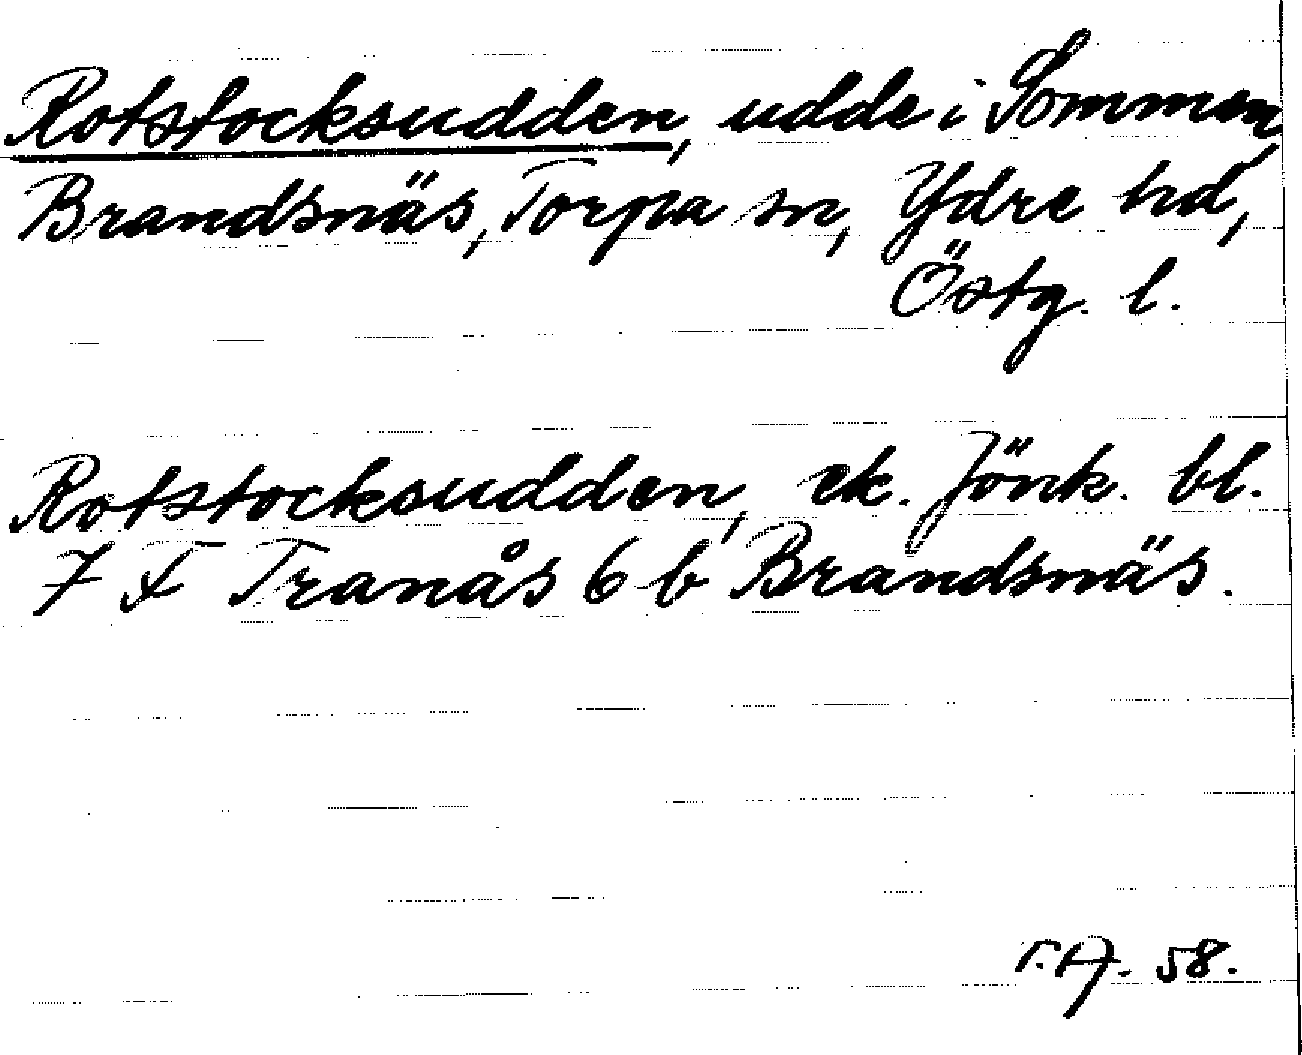 Rotstocksudden, udde i Sommen,
Brandsnäs, Torpa sn, Ydre hd,
Östg. l.
Rotstocksudden, ek. Jönk. bl.
7 F Tranås 6 b Brandsnäs.
58.